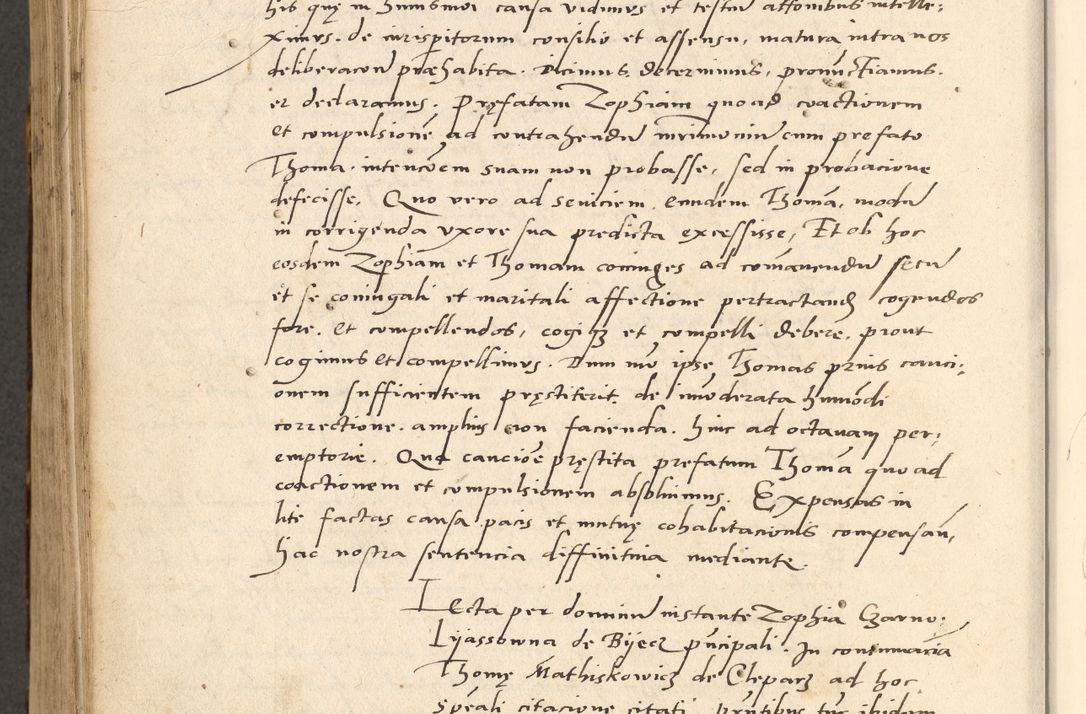 his quę in huiusmoi causa vidimus et testiu attonibus intelle:
ximus. de iurisperitorum consilio et assensu, matura intra nos
deliberacoe præhabita. Dicimus decernimus, pronuctiamus.
et declaramus. Pręfatam Zophiam quo ad coactionem
et compulsionē ad contrahendū mrimoniū cum prefato
Thoma. intencōem suam non probasse, sed in probacione
defecisse, Quo vero ad seviciem. eundem Thomā, modū
in corrigenda vxore sua predicta excessisse, Et ob hoc
eosdem Zophiam et Thomam coniuges ad comanendū secū
et se coniugali et maritali affectione pertractand cogendos
fore. et compellendos, cogiq et compelli debere, prout
cogimus et compellimus. Dum mō ipse Thomas prius cauci:
onem sufficientem pręstiterit de imōderata hmōdi
correctione. amplius non facienda. hinc ad octauam per:
emptorie. Qua caucioē pręstita prefatum Thomā quo ad
coactionem et compulsionem absoluimus. Expensas in
lite factas causa pacis et mutuę cohabitacionis compensan,
hac nostra sentencia diffinitiua mediante.
Lecta per dominū instante Zophia Czarno:
lyassowna de Byecz pncipali. In contumaciā
Thomę Mathiskowicz de Cleparz ad hoc
speali citacione citati. pntibus tuc ibidem